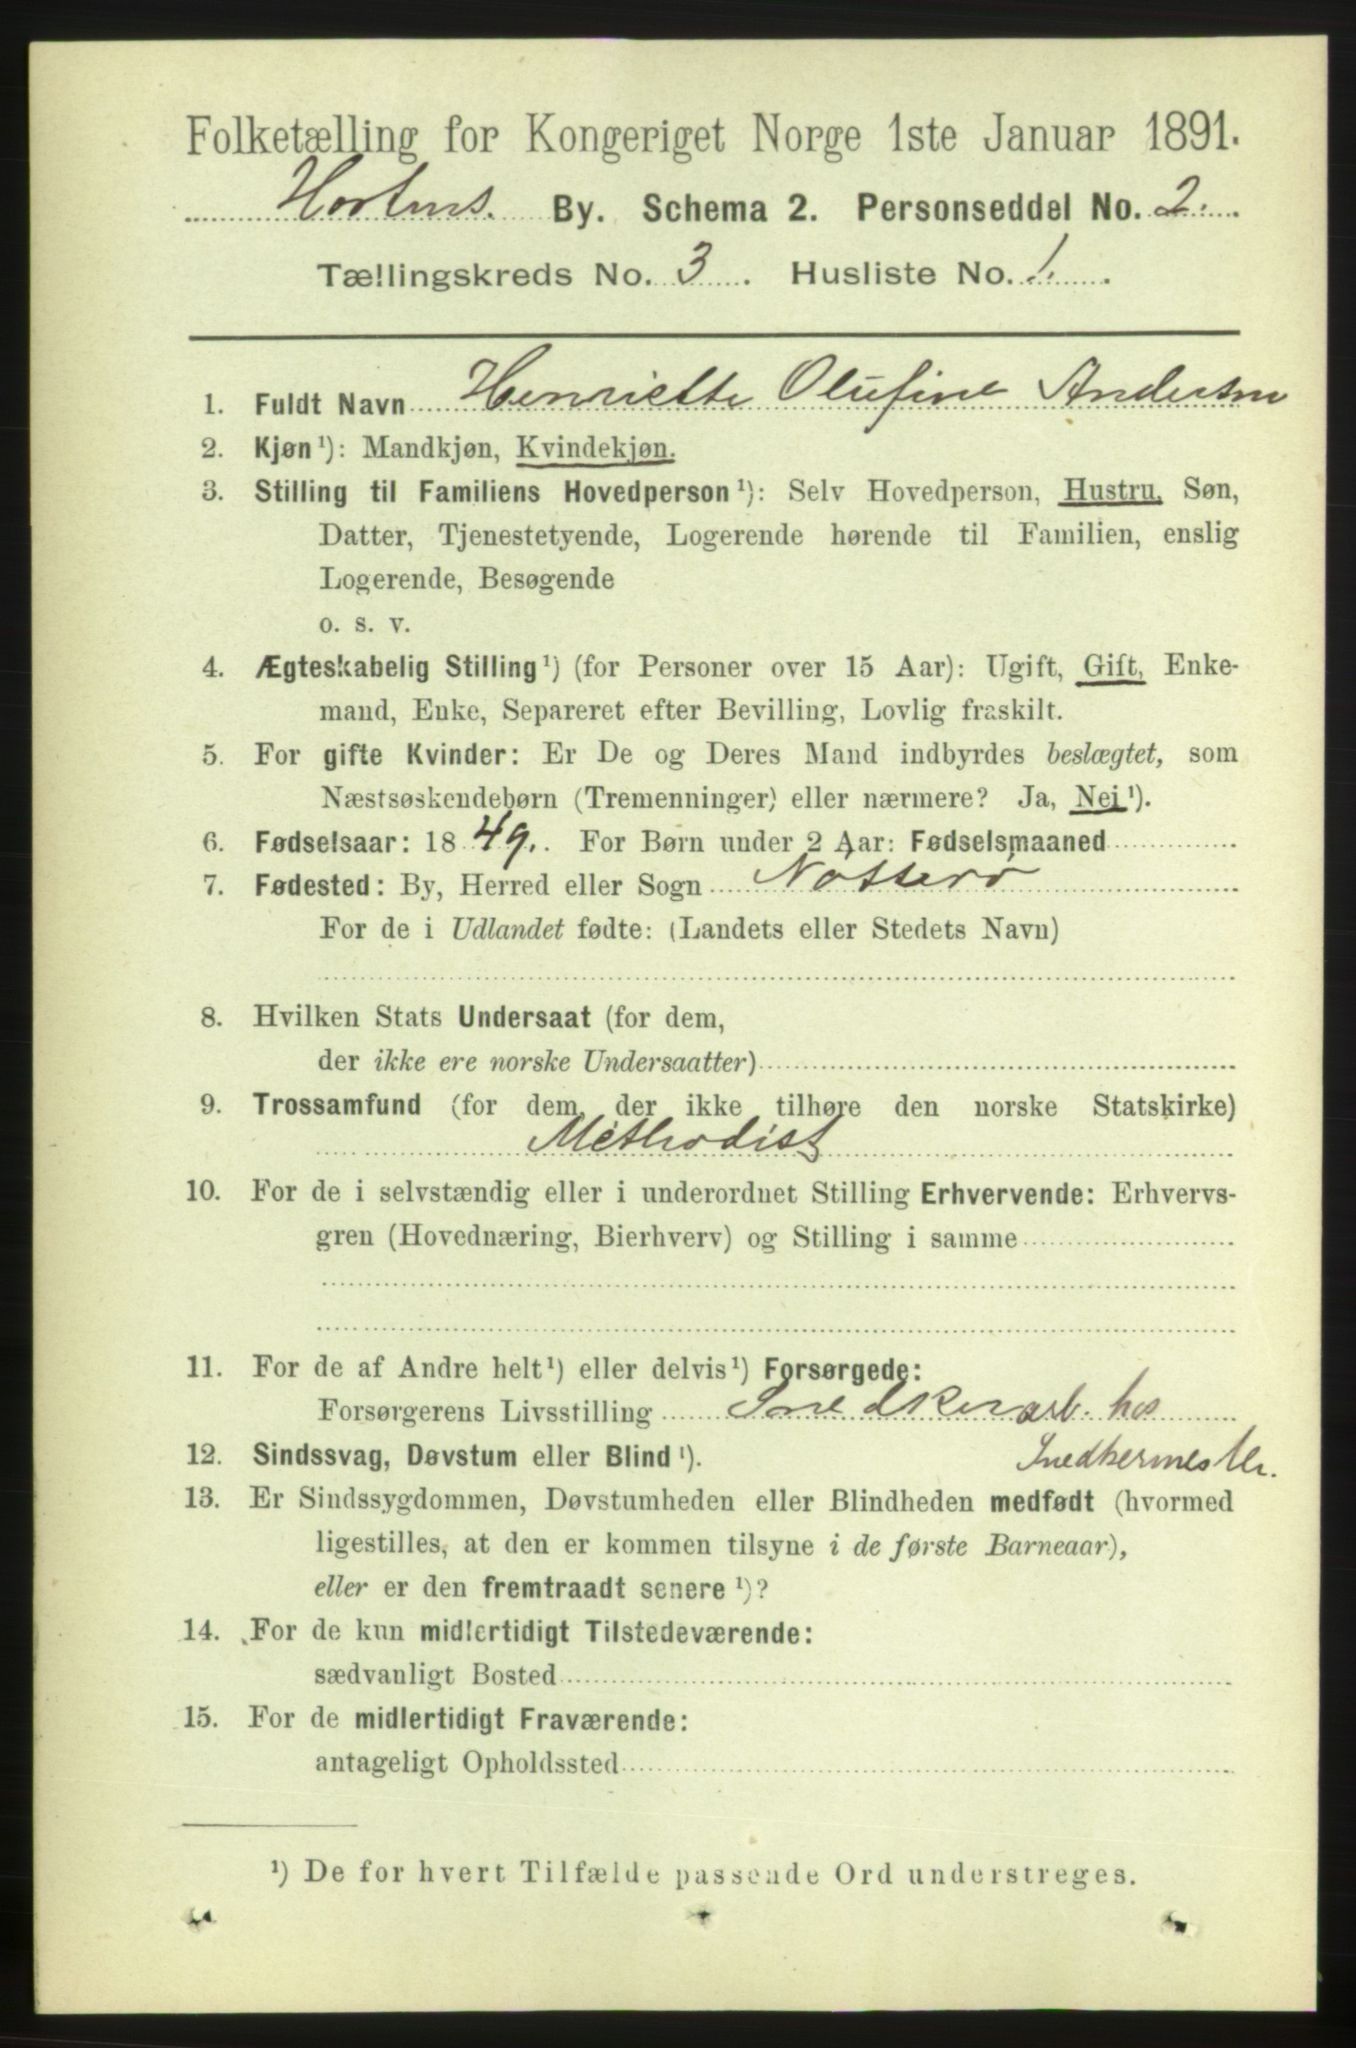 Folketælling for Kongeriget Norge 1ste Januar 1891.
Hortens. By. Schema 2. Personseddel No. 2.
Tællingskreds No. 3. Husliste No. 1.
1. Fuldt Navn Henriette Olufine Andersen
2. Kjøn¹): Mandkjøn, Kvindekjøn.
3. Stilling til Familiens Hovedperson¹): Selv Hovedperson, Hustru, Søn,
Datter, Tjenestetyende, Logerende hørende til Familien, enslig
Logerende, Besøgende
o. s. v.
4. Ægteskabelig Stilling¹) (for Personer over 15 Aar): Ugift, Gift, Enke-
mand, Enke, Separeret efter Bevilling, Lovlig fraskilt.
5. For gifte Kvinder: Er De og Deres Mand indbyrdes beslægtet, som
Næstsøskendebørn (Tremenninger) eller nærmere? Ja, Nei¹).
6. Fødselsaar: 1849. For Børn under 2 Aar: Fødselsmaaned
7. Fødested: By, Herred eller Sogn Nøtterø
For de i Udlandet fødte: (Landets eller Stedets Navn)
8. Hvilken Stats Undersaat (for dem,
der ikke ere norske Undersaatter)
9. Trossamfund (for dem, der ikke tilhøre den norske Statskirke)
Methodist
10. For de i selvstændig eller i underordnet Stilling Erhvervende: Erhvervs-
gren (Hovednæring, Bierhverv) og Stilling i samme
11. For de af Andre helt¹) eller delvis¹) Forsørgede:
Forsørgerens Livsstilling Snedkerarb. hos
Snedkermester.
12. Sindssvag, Døvstum eller Blind¹).
13. Er Sindssygdommen, Døvstumheden eller Blindheden medfødt (hvormed
ligestilles, at den er kommen tilsyne i de første Barneaar),
eller er den fremtraadt senere¹)?
14. For de kun midlertidigt Tilstedeværende:
sædvanligt Bosted
15. For de midlertidigt Fraværende:
antageligt Opholdssted
¹) De for hvert Tilfælde passende Ord understreges.